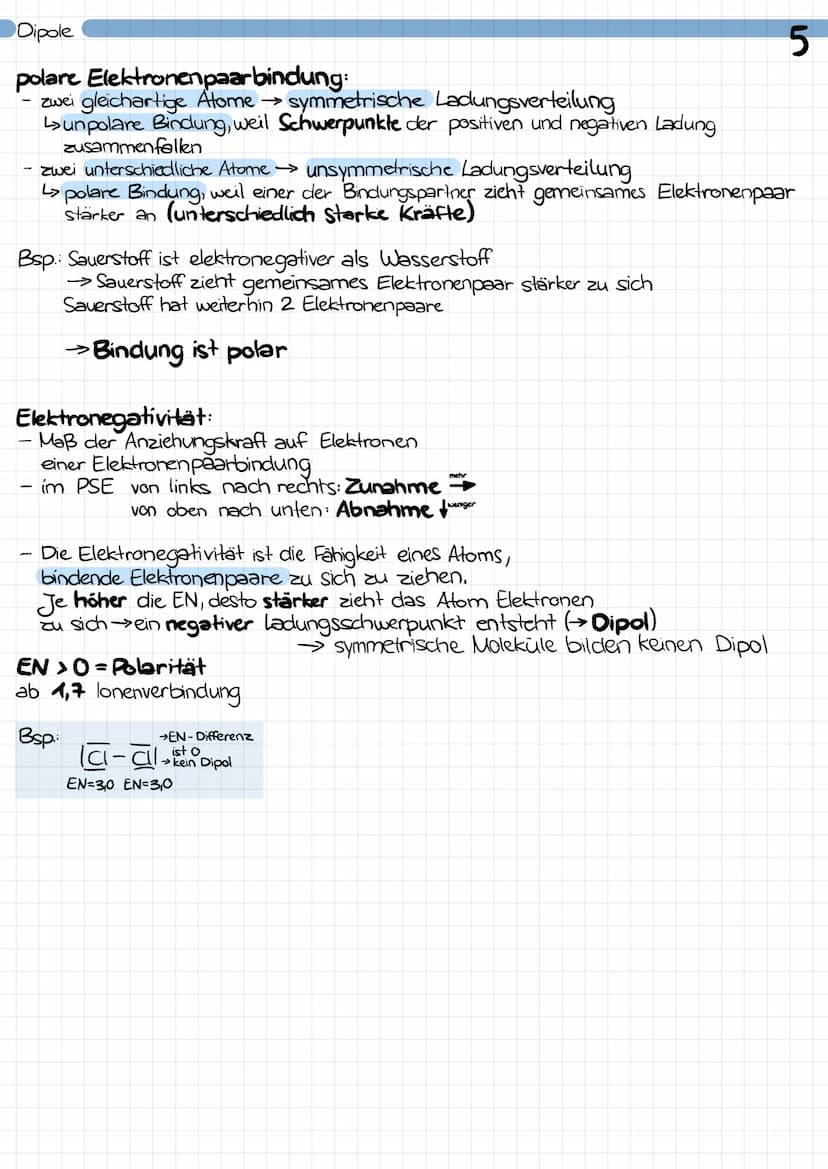 Dipole
5
polare Elektronenpaarbindung:
- zwei gleichartige Atome → symmetrische Ladungsverteilung
↳ unpolare Bindung, weil Schwerpunkte der positiven und negativen Ladung
zusammenfallen
- zwei unterschiedliche Atome → unsymmetrische Ladungsverteilung
↳ polare Bindung, weil einer der Bindungspartner zieht gemeinsames Elektronenpaar
stärker an (unterschiedlich starke Kräfte)
Bsp.: Sauerstoff ist elektronegativer als Wasserstoff
→ Sauerstoff zieht gemeinsames Elektronenpaar stärker zu sich
Sauerstoff hat weiterhin 2 Elektronenpaare
→ Bindung ist polar
Elektronegativität:
- Maß der Anziehungskraft auf Elektronen
einer Elektronenpaarbindung
- im PSE von links nach rechts: Zunahme mehr →
von oben nach unten: Abnahme ↓ weniger
- Die Elektronegativität ist die Fähigkeit eines Atoms,
bindende Elektronenpaare zu sich zu ziehen.
Je höher die EN, desto stärker zieht das Atom Elektronen
zu sich → ein negativer Ladungsschwerpunkt entsteht (→ Dipol)
→ symmetrische Moleküle bilden keinen Dipol
EN > 0 = Polarität
ab 1,7 Ionenverbindung
Bsp.: → EN-Differenz
|Cl - Cl| ist 0
→ kein Dipol
EN=3,0 EN=3,0